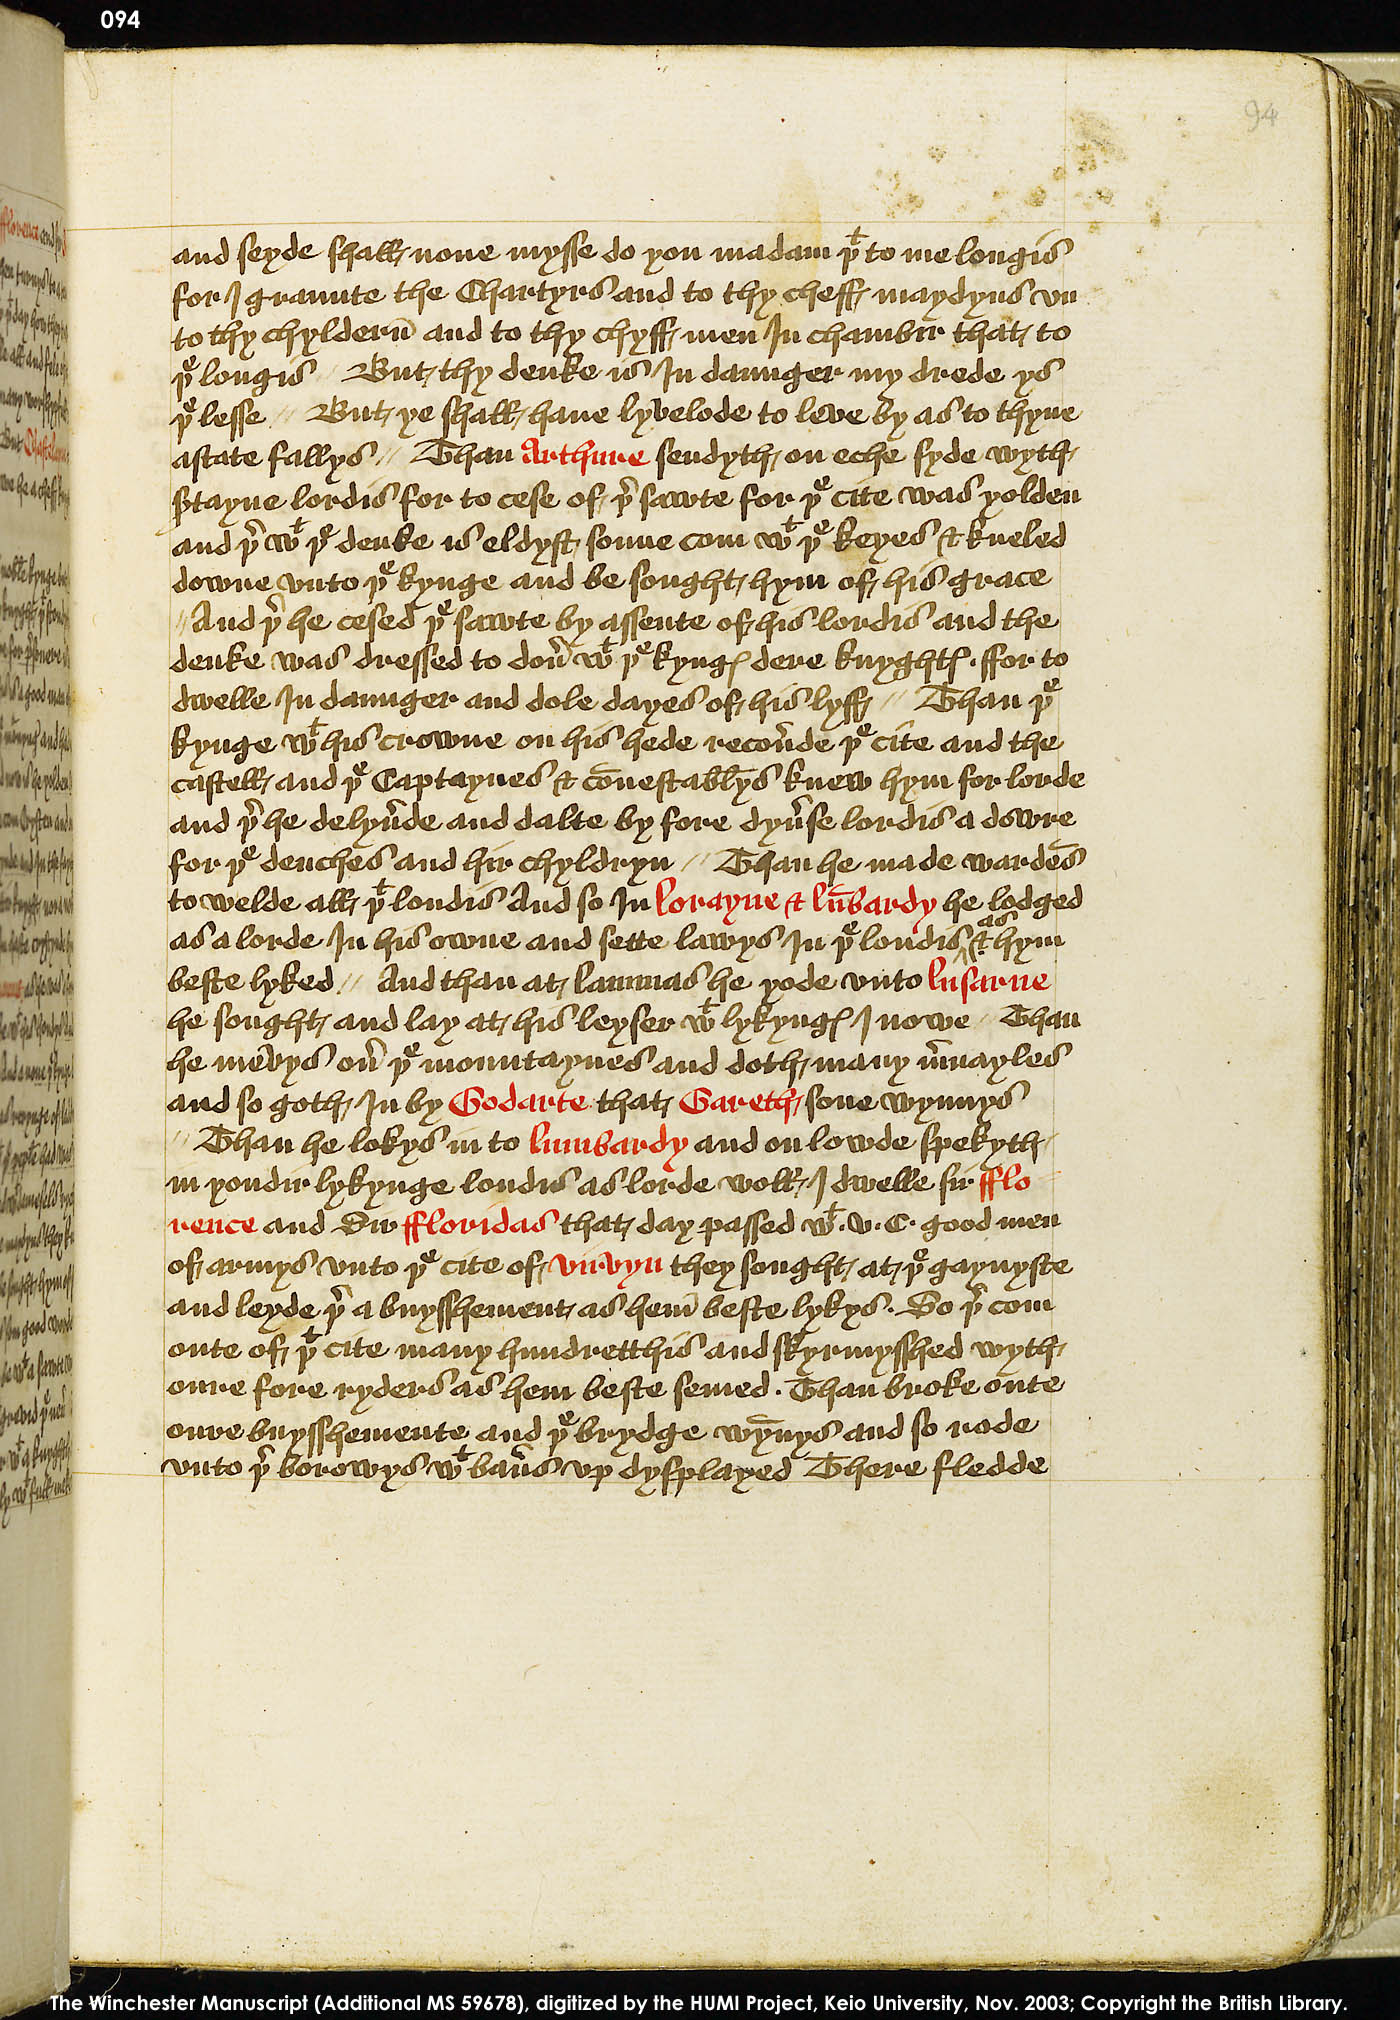 094
94
and seyde shall none mysse do you madam þt to me longis
for I graunte the Chartyrs and to thy cheff maydyns vn
to thy chylderñ and to thy chyff men In chambir that to
þe longis // But thy deuke is In daunger my drede ys
þe lesse // But ye shall haue lyvelode to leve by as to thyne
astate fallys // Than Arthure sendyth on eche syde wyth
sertayne lordis for to cese of þr sawte for þe cite was yolden
and þr wt þe deuke is eldyst sonne com wt þe keyes & kneled
downe vnto þe kynge and be sought hym of his grace
// And þr he cesed þe sawte by assente of his lordis and the
deuke was dressed to doũ wt þe kyngꝭ dere knyghtꝭ . ffor to
dwelle In daunger and dole dayes of his lyff // Than þe
kynge wt his crowne on his hede recoũde þe cite and the
castell and þe Captaynes & cōnestablys knew hym for lorde
and þr he delyũde and dalte by fore dyũse lordis a dowre
for þe deuches and hir chyldryn // Than he made wardēs
to welde all þt londis And so In lorayne & lūbardy he lodged
as a lorde In his owne and sette lawys In þe londis ^as & hym
beste lyked // And than at lammas he yode vnto lusarne
he sought and lay at his leyser wt lykyngꝭ I nowe // Than
he mevys oũ þe mountaynes and doth many mũayles
and so goth In by Godarte that Gareth sone wynnys
// Than he lokys in to lumbardy and on lowde spekyth
in yondir lykynge londis as lorde woll I dwelle sir fflo
rence and Sir ffloridas that day passed wt . v . C . good men
of armys vnto þe cite of virvyn they sought at þe gaynyste
and leyde þr a buysshement as hem̄ beste lykys . So þr com
oute of þt cite many hundretthis and skyrmysshed wyth
oure fore ryders as hem beste semed . Than broke oute
oure buysshemente and þe brydge wȳnys and so rode
vnto þr borowys wt baũs vp dysplayed There fledde
The Winchester Manuscript (Additional MS 59678), digitized by the HUMI Project, Keio University, Nov. 2003; Copyright the British Library.